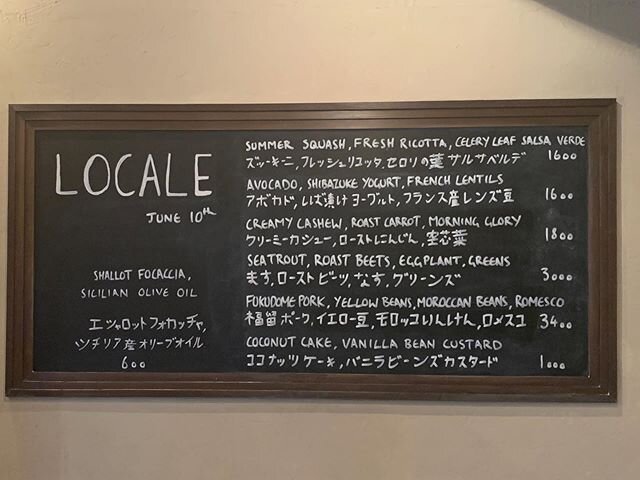 LOCALE
JUNE 10th
SHALLOT FOCACCIA,
SICILIAN OLIVE OIL
エシャロットフォカッチャ,
シチリア産オリーブオイル
600
SUMMER SQUASH, FRESH RICOTTA, CELERY LEAF SALSA VERDE
ズッキーニ, フレッシュリコッタ, セロリの葉 サルサベルデ 1600
AVOCADO, SHIBAZUKE YOGURT, FRENCH LENTILS
アボカド, しば漬け ヨーグルト, フランス産レンズ豆 1600
CREAMY CASHEW, ROAST CARROT, MORNING GLORY
クリーミーカシュー, ローストにんじん, 空芯菜 1800
SEATROUT, ROAST BEETS, EGGPLANT, GREENS
ます, ローストビーツ, なす, グリーンズ 3000
FUKUDOME PORK, YELLOW BEANS, MOROCCAN BEANS, ROMESCO
福留ポーク, イエロー豆, モロッコいんげん, ロメスコ 3400
COCONUT CAKE, VANILLA BEAN CUSTARD
ココナッツ ケーキ, バニラビーンズカスタード 1000